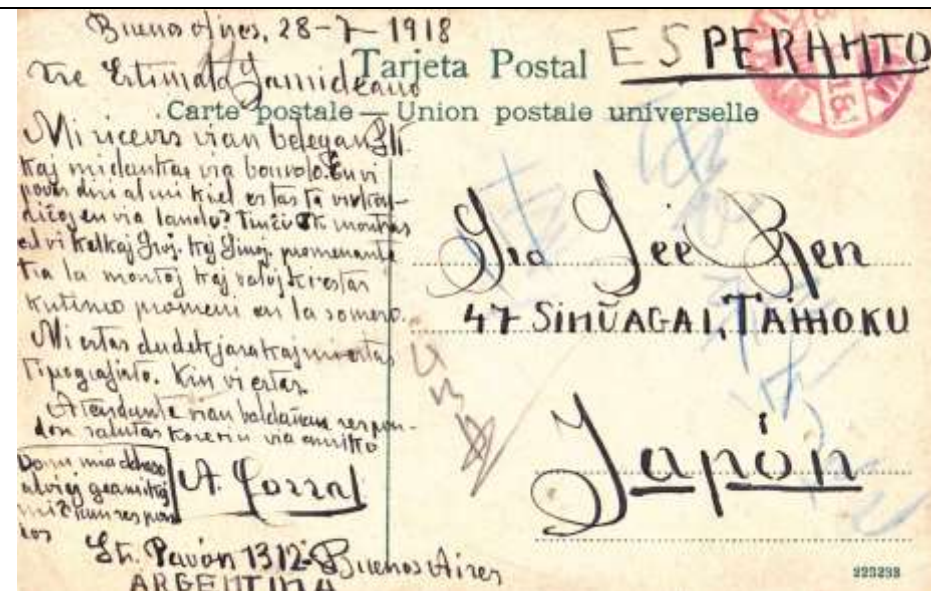 Buenos Aires, 28-7-1918
Tre Estimata Samideano
Tarjeta Postal
ESPERANTO
Carte postale — Union postale universelle
Mi ricevis vian belegan
kaj mi dankas via bonvolo. Ĉu vi
povas diri al mi kiel estas la
en via lando? montras
al vi kelkaj promenante
tra la montoj kaj valoj
kutimo promeni en la somero.
Mi estas dudekjara kaj mi estas
Tipografisto. Kin vi estas.
Atendante vian baldaŭan respon-
don salutas Kore vin via amiko
Donu mia adreso
al viaj geamikoj
mi ĉiun respon
dos
A. Corral
St. Pavón 1312-Buenos Aires
ARGENTINA
Sio Gee Ren
47 SINŬAGAI, TAIHOKU
Japón
223238